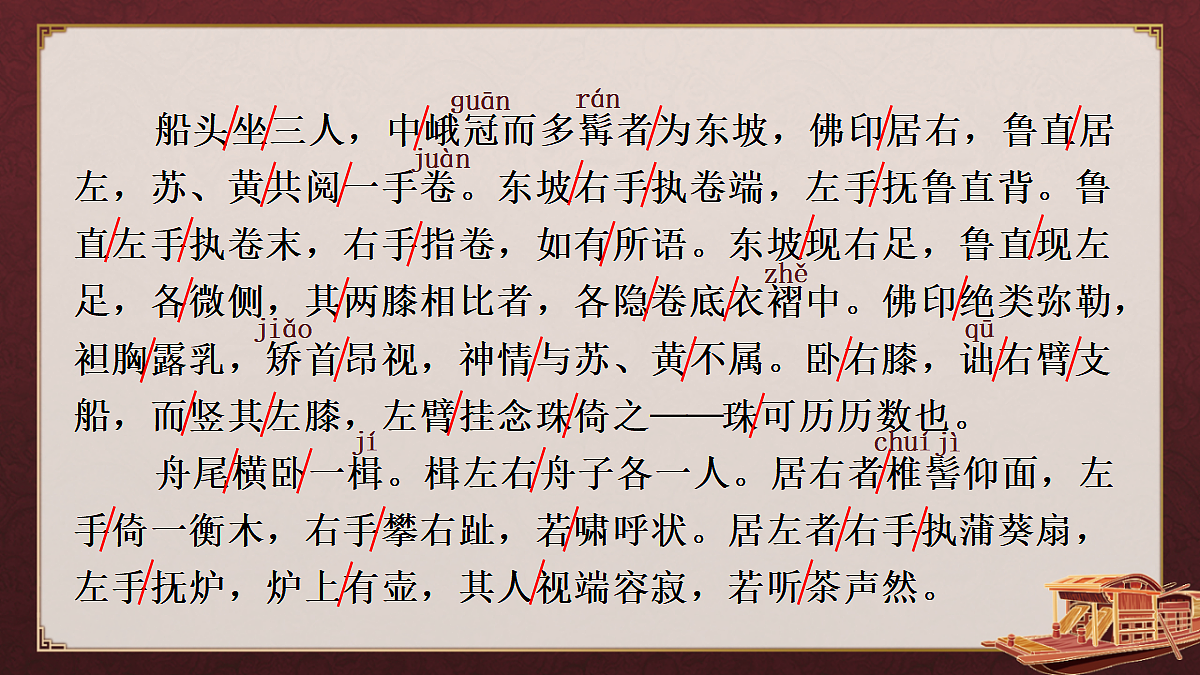 guān rán
船头/坐/三人，中/峨冠而多髯者/为东坡，佛印/居右，鲁直/居
juàn
左，苏、黄/共阅/一手卷。东坡/右手/执卷端，左手/抚鲁直背。鲁
直/左手/执卷末，右手/指卷，如有/所语。东坡/现右足，鲁直/现左
zhě
足，各/微侧，其/两膝相比者，各隐/卷底/衣褶中。佛印/绝类弥勒，
jiǎo qū
袒胸/露乳，矫首/昂视，神情/与苏、黄/不属。卧/右膝，诎/右臂/支
船，而/竖其/左膝，左臂/挂念珠/倚之——珠/可历历数也。
jí chuí jì
舟尾/横卧/一楫。楫左右/舟子各一人。居右者/椎髻仰面，左
手/倚一衡木，右手/攀右趾，若/啸呼状。居左者/右手/执蒲葵扇，
左手/抚炉，炉上/有壶，其人/视端容寂，若听/茶声然。